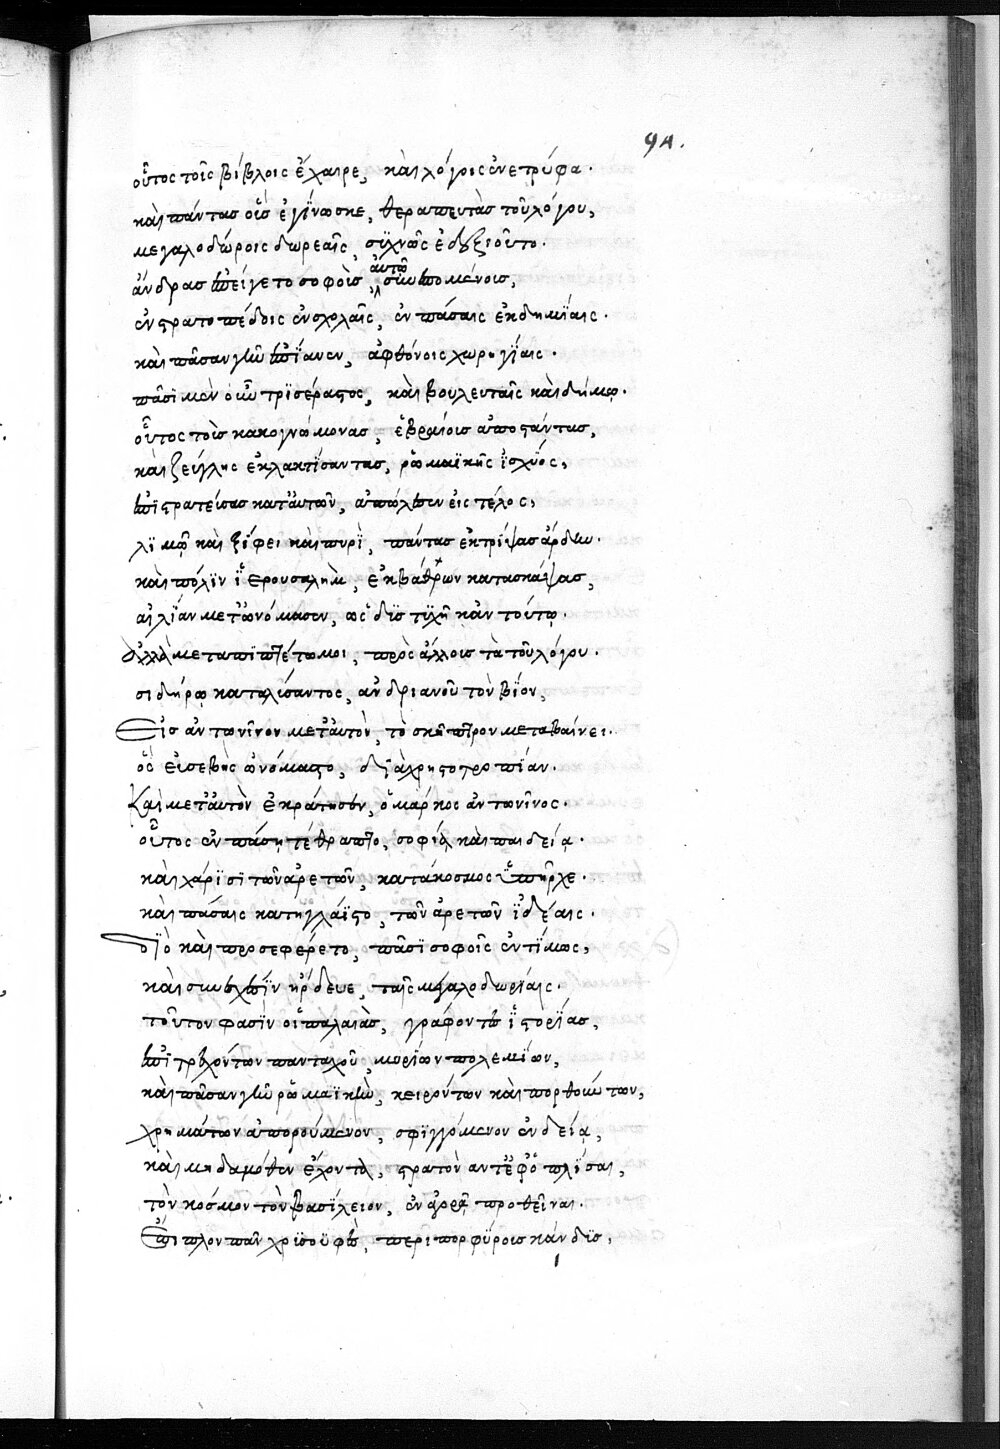 94.
οὗτος τοῖς βίβλοις ἔχαιρε, καὶ λόγοις ἐνετρύφα.
καὶ πάντας οὓς ἐγίνωσκε, θεραπευτὰς τοῦ λόγου,
μεγαλοδώροις δωρεαῖς, συχνῶς ἐδεξιοῦτο.
ἄνδρας ἐπείγετο σοφοὺς αὐτῷ συνεπομένοις,
ἐν στρατοπέδοις ἐν σχολαῖς, ἐν πάσαις ἐκδημίαις.
καὶ πᾶσαν γῆν ἐπίανεν, ἀφθόνοις χορηγίαις.
πᾶσι μὲν οὖν τρισέραστος, καὶ βουλευταῖς καὶ δήμῳ.
οὗτος τοὺς κακογνώμονας, ἑβραίοις ἀποστάντας,
καὶ ζεύγλης ἐκλακτίσαντας, ῥωμαϊκῆς ἰσχύος,
ἐπιστρατεύσας κατ' αὐτῶν, ἀπώλεσεν εἰς τέλος,
λιμῷ καὶ ξίφει καὶ πυρὶ, πάντας ἐκτρίψας ἄρδην.
καὶ πόλιν ἱερουσαλὴμ, ἐκ βάθρων κατασκάψας,
αἰλίαν μετωνόμασεν, ὡς
ἀλλὰ μεταπιπτέτω μοι, πρὸς ἄλλοις τὰ τοῦ λόγου.
σιδήρῳ καταλύσαντος, ἀνδριανοῦ τὸν βίον,
Εἰς ἀντωνῖνον μετ' αὐτὸν, τὸ σκῆπτρον μεταβαίνει.
ὃς εὐσεβὴς ὠνόμαστο, διὰ χρηστοτροπίαν.
Καὶ μετ' αὐτὸν ἐκράτησεν, ὁ μάρκος ἀντωνῖνος.
οὗτος ἐν πάσῃ τέθραπτο, σοφίᾳ καὶ παιδείᾳ.
καὶ χάρισι τῶν ἀρετῶν, κατάκοσμος ὑπῆρχε.
καὶ πάσαις κατηγλάϊστο, τῶν ἀρετῶν ἰδέαις.
διὸ καὶ προσεφέρετο, πᾶσι σοφοῖς ἐντίμως,
καὶ συνεχὲς ἤρδευε, ταῖς μεγαλοδωρίαις.
τοῦτον φασὶν οἱ παλαιὰς, γράφοντες ἱστορίας,
ἐπιτρεχόντων πανταχοῦ, μυρίων πολεμίων,
καὶ πᾶσαν γῆν ῥωμαϊκὴν, κειρόντων καὶ πορθούντων,
χρημάτων ἀπορούμενον, σφιγγόμενον ἐνδείᾳ,
καὶ μηδαμόθεν ἔχοντα, στρατὸν ἀντεφοπλίσαι,
τὸν κόσμον τὸν βασίλειον, ἐν ἀγορᾷ προθεῖναι.
Ἔπιπλον πᾶν χρυσοϋφὲς, περιπορφύροις κάνδυς,